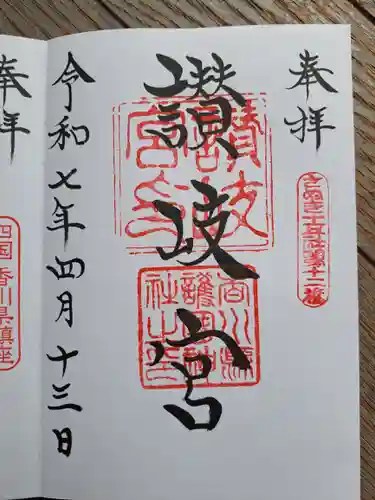 奉拝
さぬき十五社第十一番
讃岐宮
讃岐宮印
香川縣護國神社之印
令和七年四月十三日
奉拝
四国 香川県鎮座